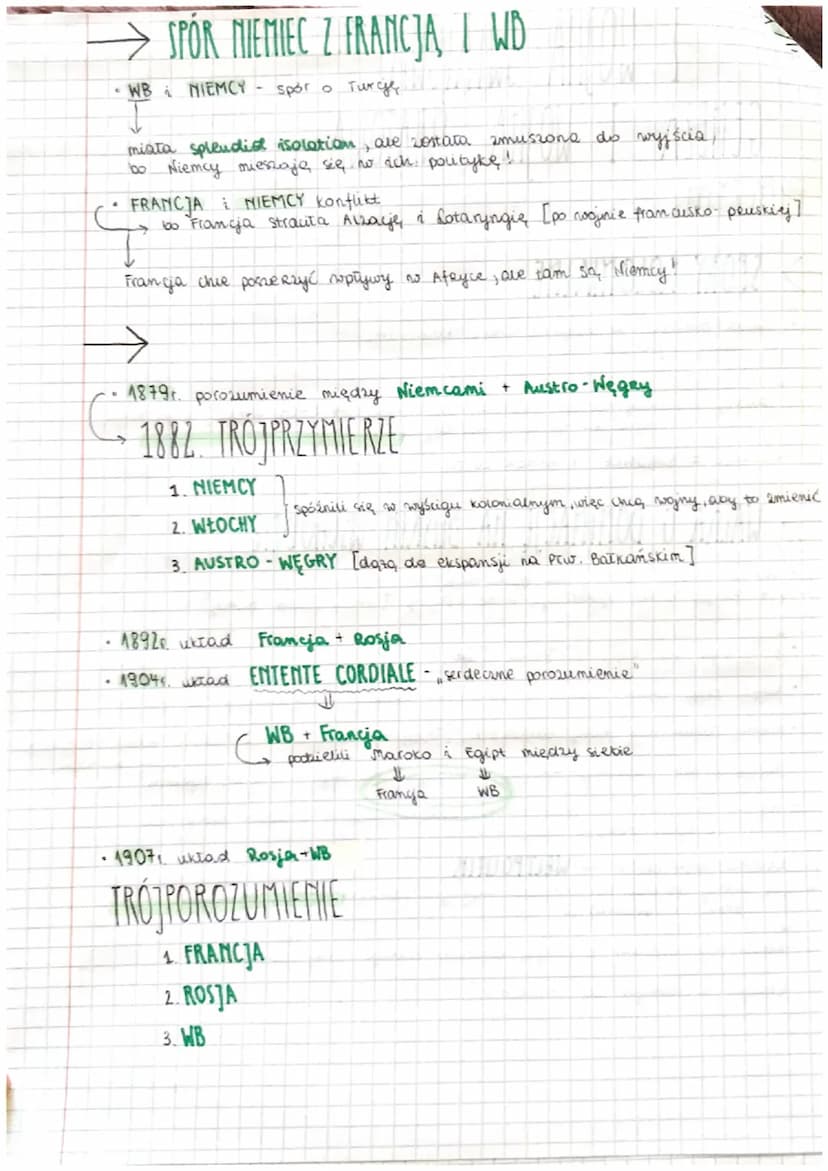 → SPÓR NIEMIEC Z FRANCJĄ I WB
• WB i NIEMCY - spór o Turcję
↓
miała splendid isolation, ale została zmuszona do wyjścia,
bo Niemcy mieszają się w ich politykę!
• FRANCJA i NIEMCY konflikt
→ bo Francja straciła Alzację i Lotaryngię [po wojnie francusko-pruskiej]
↓
Francja chce poszerzyć wpływy w Afryce, ale tam są Niemcy!
→
• 1879r. porozumienie między Niemcami + Austro-Węgry
→ 1882. TRÓJPRZYMIERZE
1. NIEMCY
spóźnili się w wyścigu kolonialnym, więc chcą wojny, aby to zmienić
2. WŁOCHY
3. AUSTRO-WĘGRY [dążą do ekspansji na Płw. Bałkańskim]
• 1892r. układ Francja + Rosja
• 1904r. układ ENTENTE CORDIALE - „serdeczne porozumienie"
⇓
WB + Francja
→ podzielili Maroko i Egipt między siebie
⇓ ⇓
Francja WB
• 1907r. układ Rosja+WB
TRÓJPOROZUMIENIE
1. FRANCJA
2. ROSJA
3. WB